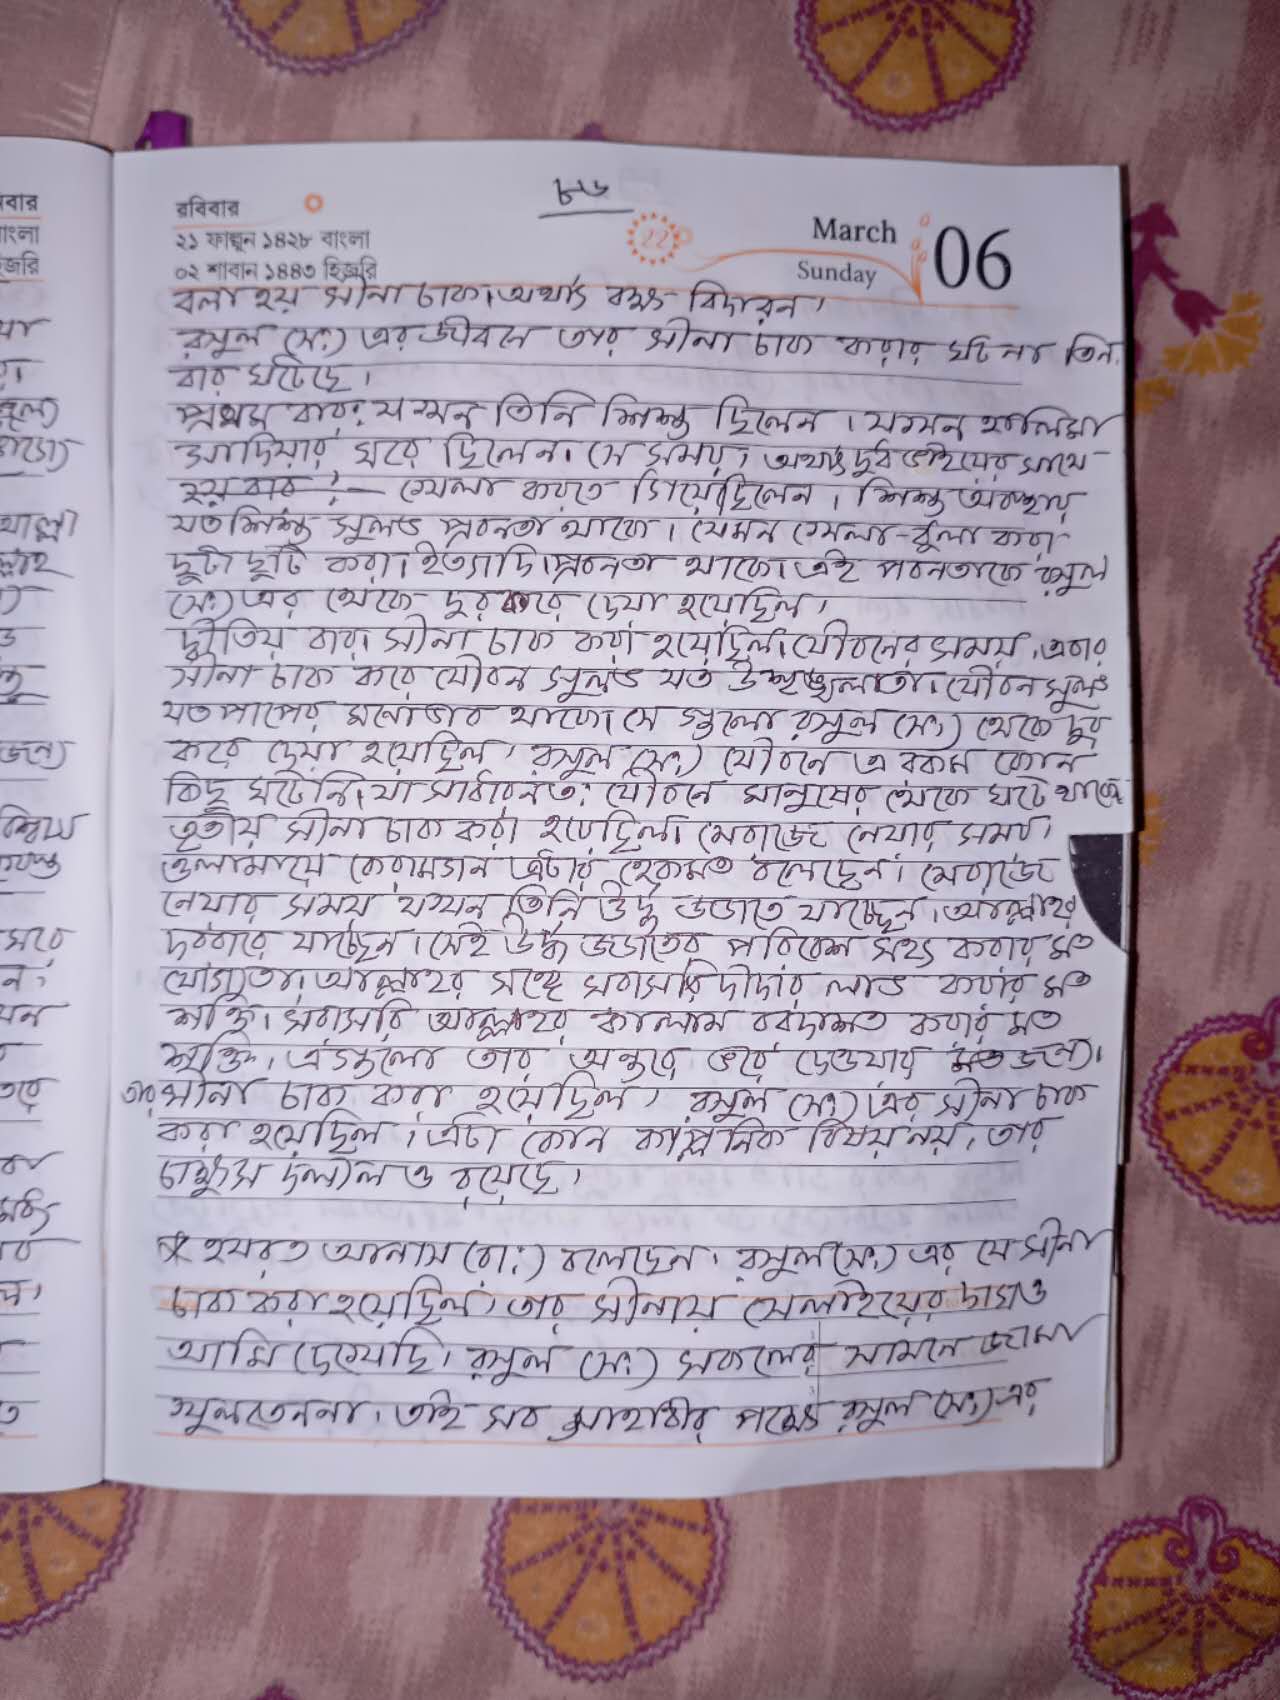 ৮৬
রবিবার
২১ ফাল্গুন ১৪২৮ বাংলা
০২ শাবান ১৪৪৩ হিজরি
22
March
Sunday
06
বলা হয় সীনা চাক। অর্থাৎ বক্ষ বিদারন।
রসুল (সঃ) এর জীবনে তার সীনা চাক করার ঘটনা তিন
বার ঘটেছে।
প্রথম বারঃ যখন তিনি শিশু ছিলেন। যখন হালিমা
সাদিয়ার ঘরে ছিলেন। সে সময়, অর্থাৎ দুধ ভাইয়ের সাথে
খেলা করতে গিয়েছিলেন। শিশু অবস্থায়
যত শিশু সুলভ প্রবনতা থাকে। যেমন খেলা-ধুলা করা
ছুটা ছুটি করা। ইত্যাদি প্রবনতা থাকে। এই পবনতাকে রসুল
(সঃ) এর থেকে দুর করে দেয়া হয়েছিল।
দ্বীতিয় বার। সীনা চাক করা হয়েছিল। যৌবনের সময়। এবার
সীনা চাক করে যৌবন সুলভ যত উশৃঙ্খলাতা। যৌবন সুলভ
যত পাপের মনোভাব থাকে। সে গুলো রসুল (সঃ) থেকে দুর
করে দেয়া হয়েছিল। রসুল (সঃ) যৌবনে এ রকম কোন
কিছু ঘটেনি। যা সাধারনতঃ যৌবনে মানুষের থেকে ঘটে থাকে
তৃতীয় সীনা চাক করা হয়েছিল। মেরাজে নেয়ার সময়।
ওলামায়ে কেরামগন এটার হেকমত বলেছেন। মেরাজে
নেয়ার সময় যখন তিনি উর্দ্ধ জগতে যাচ্ছেন। আল্লাহর
দরবারে যাচ্ছেন। সেই উর্দ্ধ জগতের পরিবেশ সহ্য করার মত
যোগ্যতা। আল্লাহর সঙ্গে সরাসরি দীদার লাভ করার মত
শক্তি। সরাসরি আল্লাহর কালাম বরদাশত করার মত
শক্তি। এগুলো তার অন্তরে ভরে দেওয়ার জন্য।
তার সীনা চাক করা হয়েছিল। রসুল (সঃ) এর সীনা চাক
করা হয়েছিল। এটা কোন কাল্পনিক বিষয় নয়। তার
চাক্ষুস দলীল ও রয়েছে।
* হযরত আনাস (রাঃ) বলেছেন। রসুল (সঃ) এর যে সীনা
চাক করা হয়েছিল। তার সীনায় সেলাইয়ের দাগও
আমি দেখেছি। রসুল (সঃ) সকলের সামনে জামা
খুলতেননা। তাই সব সাহাবীর পক্ষে রসুল (সঃ) এর